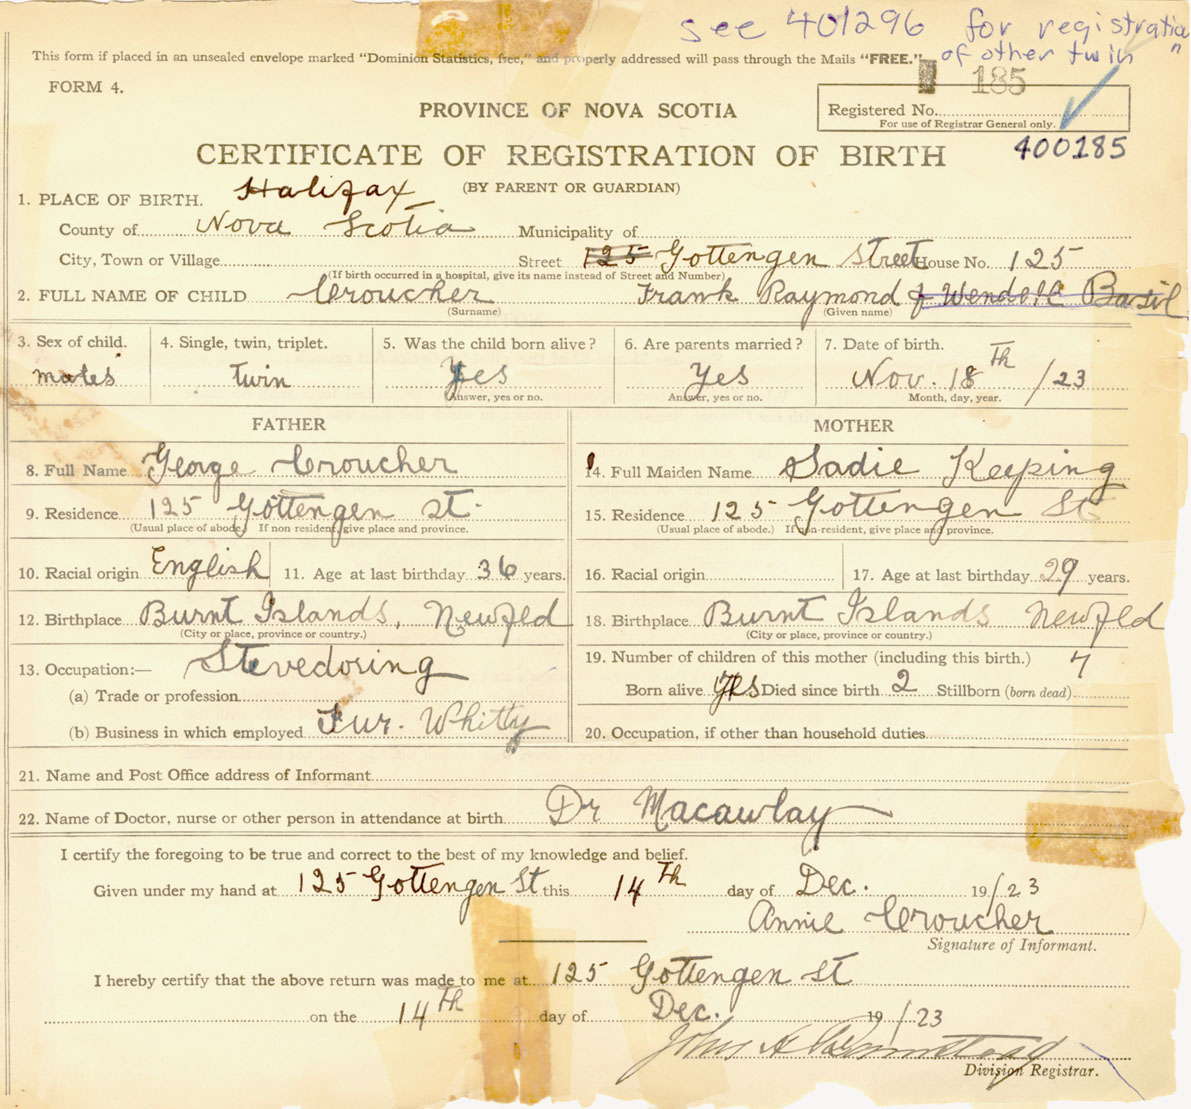 see 401296 for registration
of other twin
This form if placed in an unsealed envelope marked "Dominion Statistics, free," and properly addressed will pass through the Mails "FREE."
185
FORM 4.
PROVINCE OF NOVA SCOTIA
Registered No.
For use of Registrar General only.
400185
CERTIFICATE OF REGISTRATION OF BIRTH
(BY PARENT OR GUARDIAN)
1. PLACE OF BIRTH. Halifax
County of Nova Scotia Municipality of
City, Town or Village Street 125 Gottengen Street House No. 125
(If birth occurred in a hospital, give its name instead of Street and Number)
2. FULL NAME OF CHILD Croucher Frank Raymond & Wendell Basil
(Surname) (Given name)
3. Sex of child. 4. Single, twin, triplet. 5. Was the child born alive? 6. Are parents married? 7. Date of birth.
males twin Yes Yes Nov. 18th /23
Answer, yes or no. Answer, yes or no. Month, day, year.
FATHER MOTHER
8. Full Name George Croucher 14. Full Maiden Name Sadie Keeping
9. Residence 125 Gottengen St. 15. Residence 125 Gottengen St
(Usual place of abode. If non resident, give place and province. (Usual place of abode.) If non-resident, give place and province.
10. Racial origin English 11. Age at last birthday 36 years. 16. Racial origin 17. Age at last birthday 29 years.
12. Birthplace Burnt Islands, Newfld 18. Birthplace Burnt Islands Newfld
(City or place, province or country.) (City or place, province or country.)
13. Occupation:— Stevedoring 19. Number of children of this mother (including this birth.) 7
(a) Trade or profession Born alive yes Died since birth 2 Stillborn (born dead)
(b) Business in which employed Fur. Whitty 20. Occupation, if other than household duties
21. Name and Post Office address of Informant
22. Name of Doctor, nurse or other person in attendance at birth Dr Macawlay
I certify the foregoing to be true and correct to the best of my knowledge and belief.
Given under my hand at 125 Gottengen St this 14th day of Dec. 19/23
Annie Croucher
Signature of Informant.
I hereby certify that the above return was made to me at 125 Gottengen St
on the 14th day of Dec. 19/23
John A
Division Registrar.